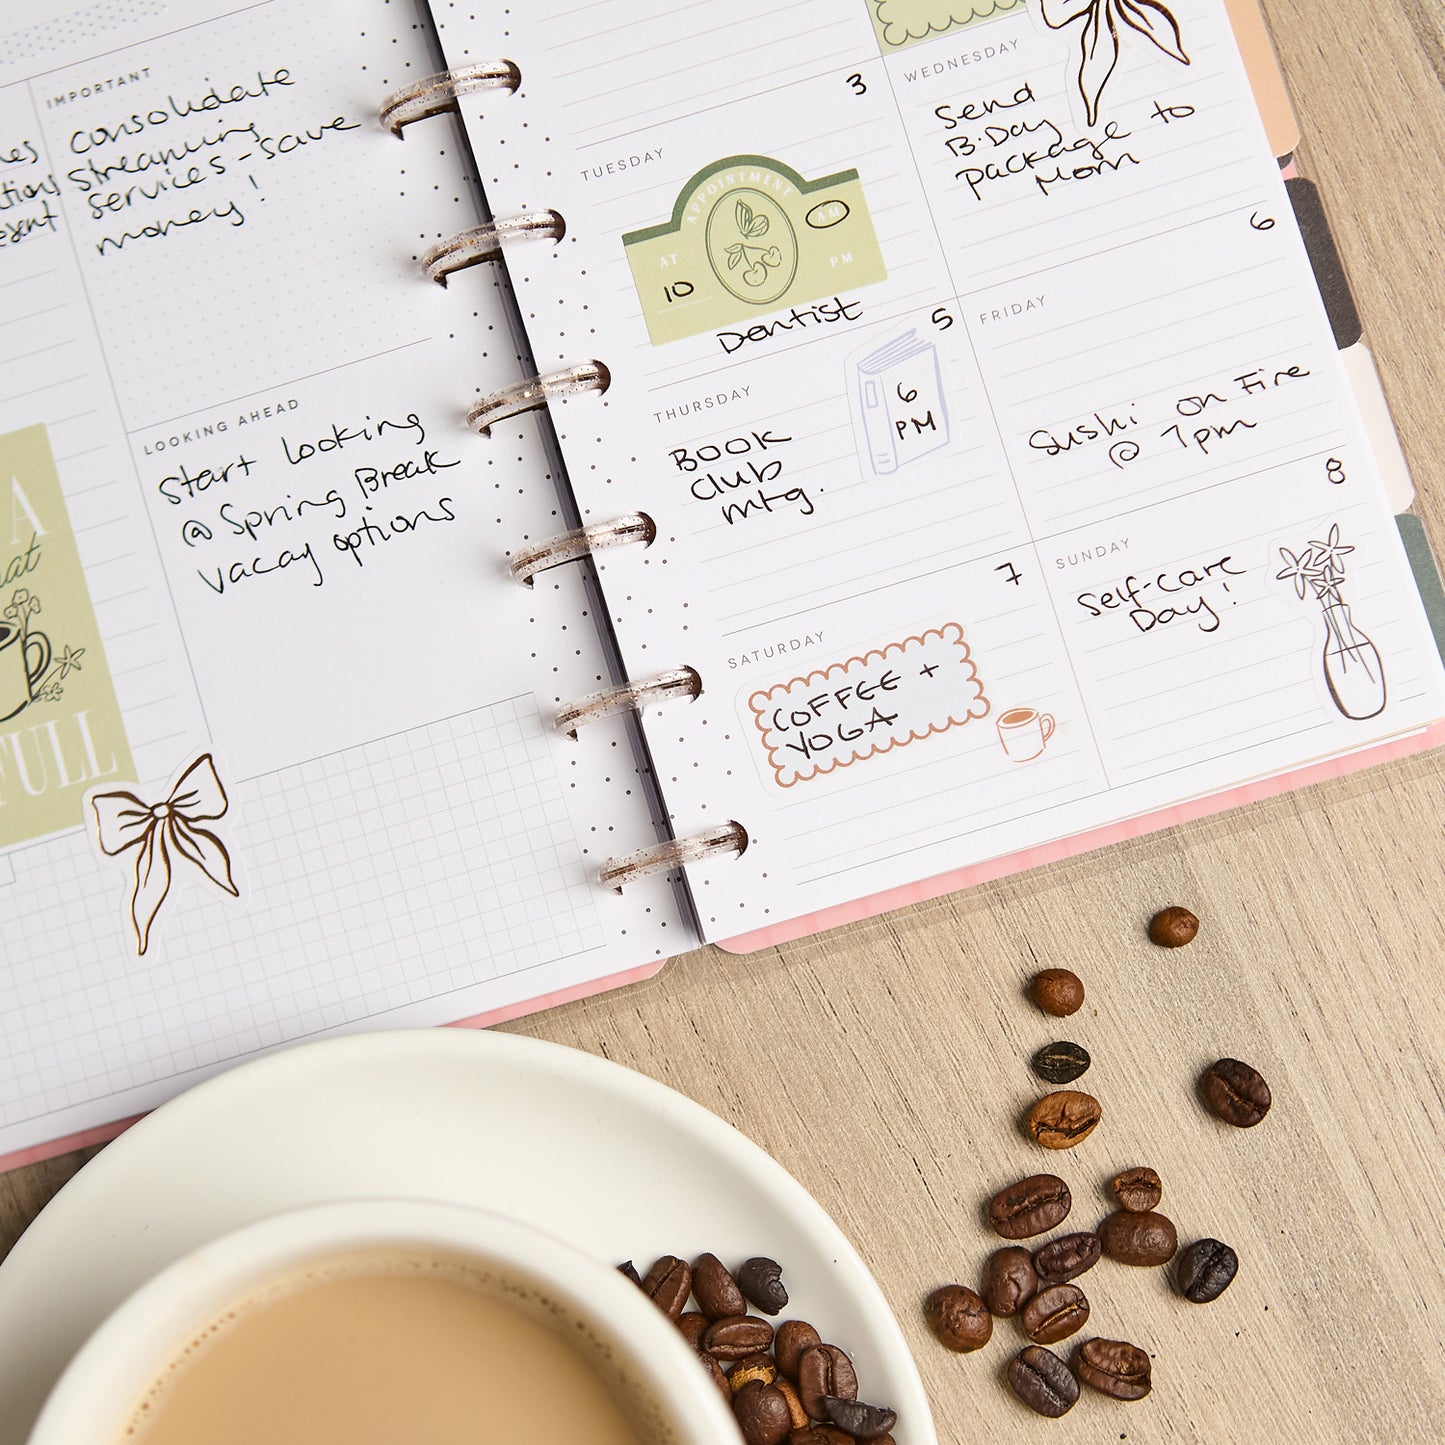 IMPORTANT
consolidate
streaming
services - save
money!
LOOKING AHEAD
Start looking
@ Spring Break
vacay options
A
FULL
3
TUESDAY
APPOINTMENT
AT
10
AM
PM
Dentist
WEDNESDAY
Send
B-Day
package to
Mom
5
THURSDAY
BOOK
Club
mtg.
6
PM
6
FRIDAY
Sushi on Fire
@ 7pm
7
SATURDAY
COFFEE +
YOGA
8
SUNDAY
Self-care
Day!